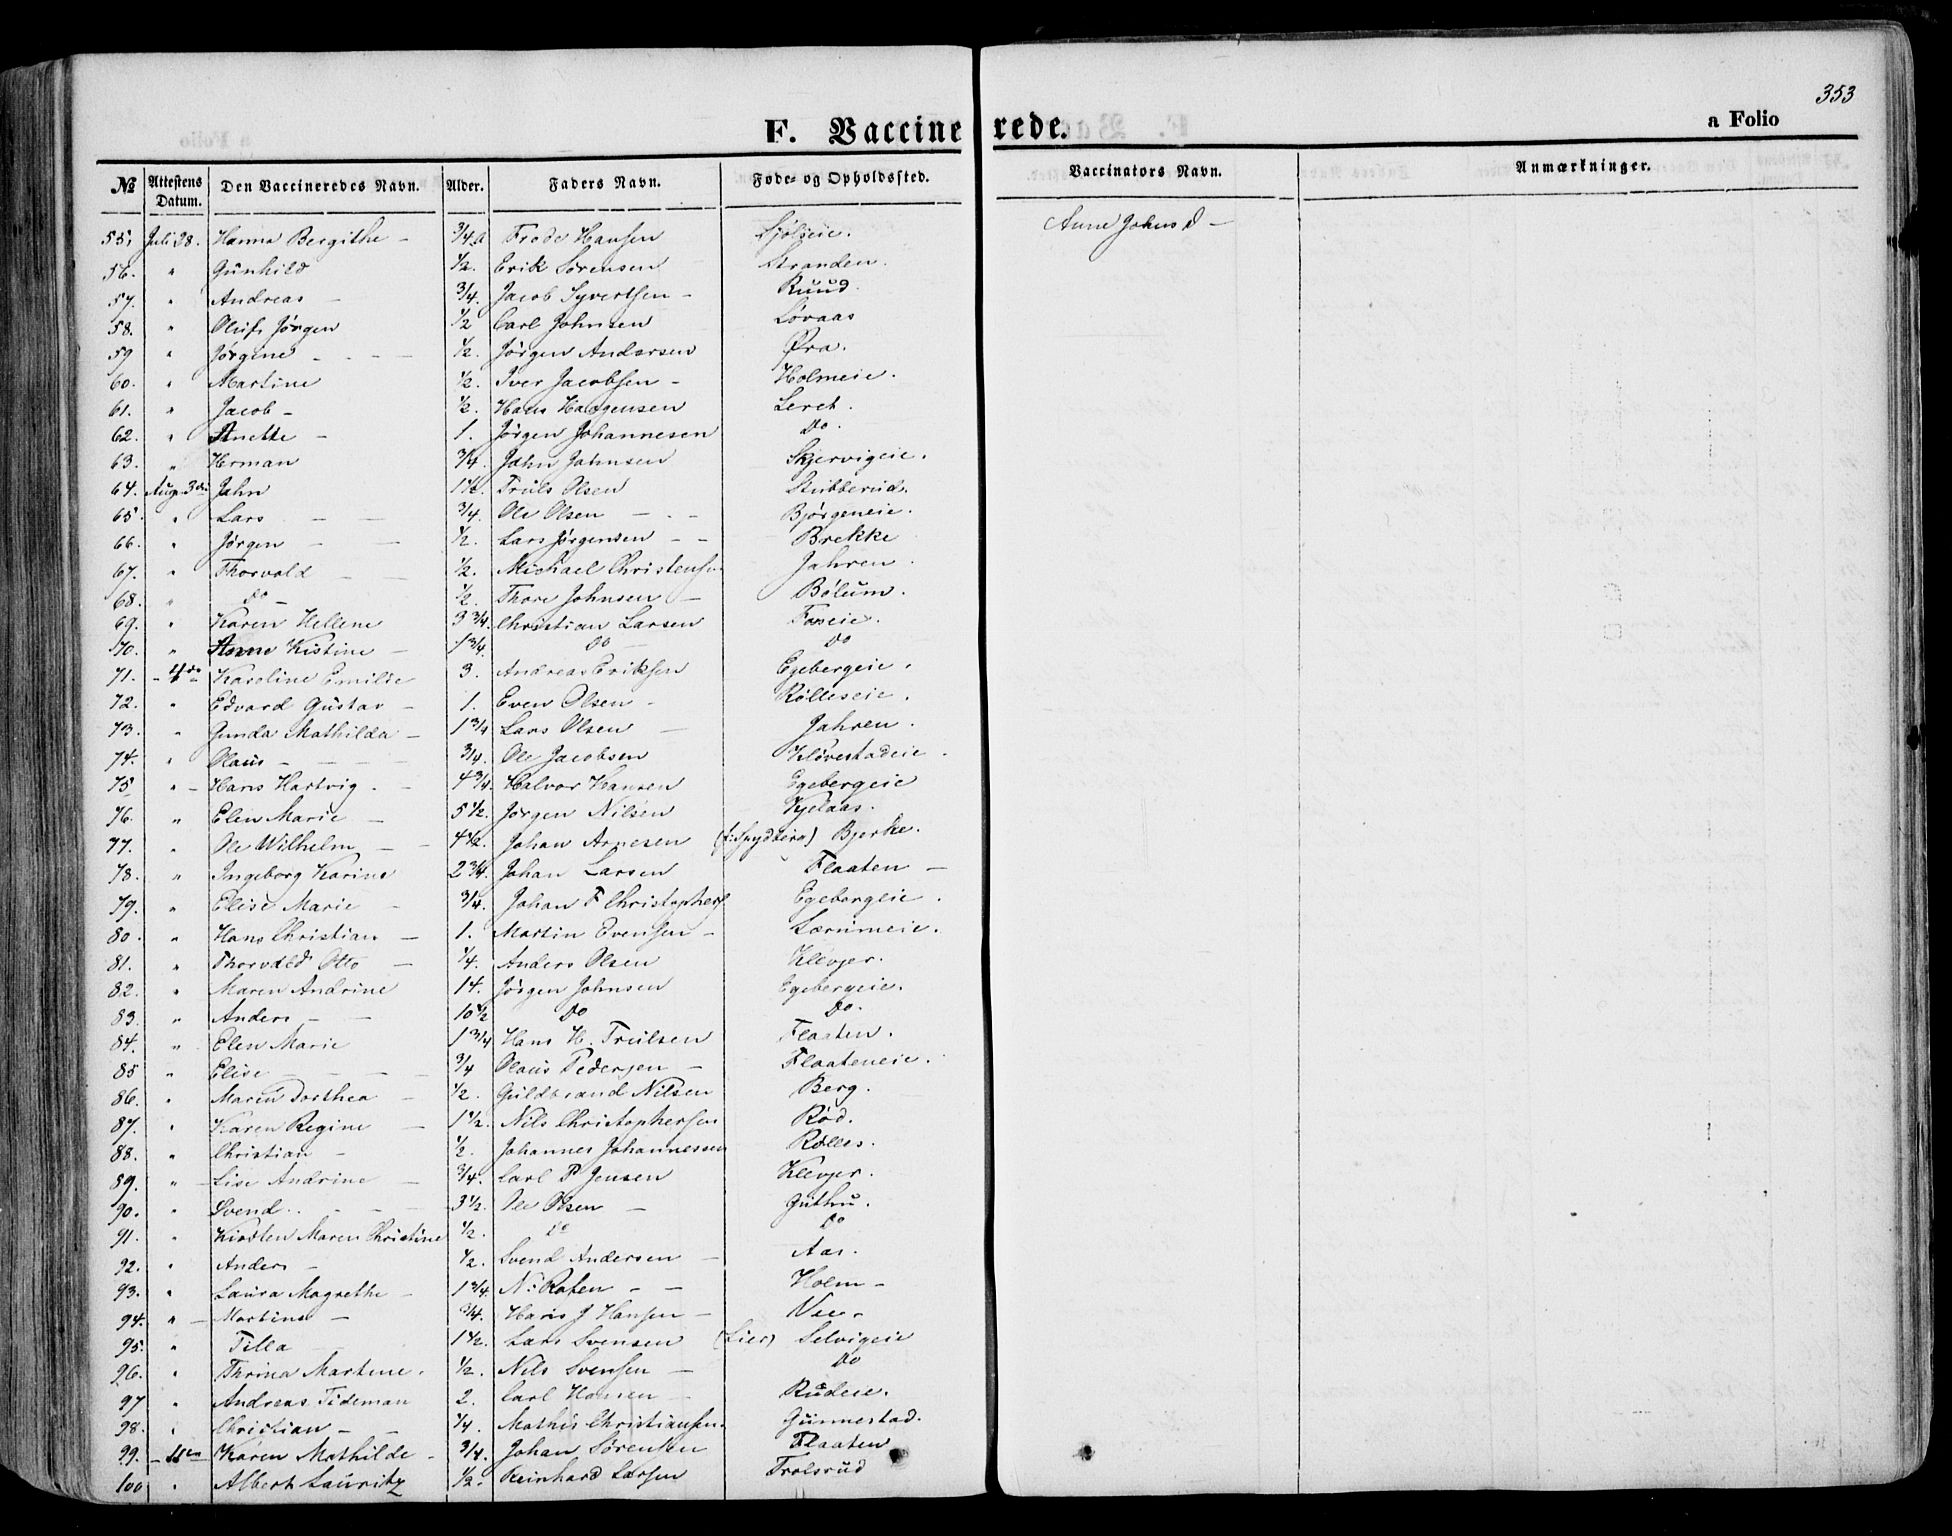 353
F. Vaccinerede.
a Folio
№ Attestens Datum. Den Vaccineredes Navn. Alder. Faders Navn. Føde- og Opholdssted. Vaccinators Navn. Anmærkninger.
55. Juli 28. Hanna Bergithe - 3/4 Frode Hansen Anne Johnsd -
56. " Gunhild 1/2. Erik Sørensen Stranden.
57. " Andreas - 3/4. Jacob Syvertsen - Ruud.
58. " Oluf Jørgen 1/2 Carl Johnsen Løvaas
59 " Jørgine - - - 1/2. Jørgen Andersen Øra.
60. " Martine 1/2. Iver Jacobsen - Holmeie.
61. " Jacob - 1/2. Hans Haagensen Leret.
62. " Anette - 1. Jørgen Johannesen Do.
63. " Herman 3/4. John Johnsen Skjervigeie.
64. Aug. 3die John 1 1/2. Truls Olsen Stubberud.
65. " Lars - - 3/4. Ole Olsen - - - Bjørgeneie.
66. " Jørgen - - 1/2. Lars Jørgensen - - Brekke
67. " Thorvald - - 1/2. Michael Christensen Jahren.
68. " Do - 1/2. Thore Johnsen - Bølum.
69. " Karen Hellene 3 3/4. Christian Larsen Foseie.
70. " Anne Kistine - 1 3/4. Do - Do
71. - 4de Karoline Emilie 3. Andreas Eriksen Egebergeie.
72. " Edvard Gustav - 1. Even Olsen - Rølleseie.
73. " Gunda Mathilda - 1 3/4 Lars Olsen - Jahren.
74. " Olaus - - - 3/4. Ole Jacobsen Kløvestadeie.
75 " - Hans Hartvig. - 4 3/4. Halvor Hansen Egebergeie
76. " Elen Marie - 5 1/2. Jørgen Nilsen Kjelaas.
77. " Ole Wilhelm - - 4 1/2. Johan Arnesen (f: Spydberg) Bjerke.
78. " Ingeborg Karine 2 3/4. Johan Larsen Flaaten -
79. " Elise Marie - 3/4. Johan F Christophers Egebergeie.
80. " Hans Christian - 1. Martin Evensen -
81. " Thorvald Otto - 1/4. Anders Olsen Klevjer.
82. " Maren Andrine 14. Jørgen Johnsen Egebergeie.
83. " Anders - - 10 1/2 Do Do.
84. " Elen Marie 1 3/4 Hans H. Trulsen Flaaten.
85 " Elise - - - 3/4 Olaus Pedersen - Flaateneie.
86. " Maren Dorthea - 1/2. Guldbrand Nilsen Berg.
87. " Karen Regine - 1 1/2. Nils Christophersen Rød.
88. " Christian - 1/2. Johannes Johannessen Rølles.
89. " - Lise Andrine - 3/4. Carl P Jensen Klevjer.
90. " Svend. - - - 3 1/2. Ole Olsen - Guthu.
91. " Kirsten Maren Christine 1/2. Do Do
92. " Anders - 1/2. Svend Andersen - Aas.
93. " Laura Magrethe - 1 3/4. N: Roten - - Holm -
94. " - Martine - 3/4. Hans J Hansen -
95. " Tilla 1 1/2. Lars Svensen (Lier) Selvigeie
96. " Thrina Martine. 1/2. Nils Svensen - Do
97 " Andreas Tideman 2. Carl Hansen - Rudeie.
98. " Christian - - 1/4. Mathis Christiansen. Gunnestad.
99. - Karen Mathilde - 3/4. Johan Sørensen Flaaten
100 " Albert Lauritz 1/2. Reinhard Larsen Trolsrud